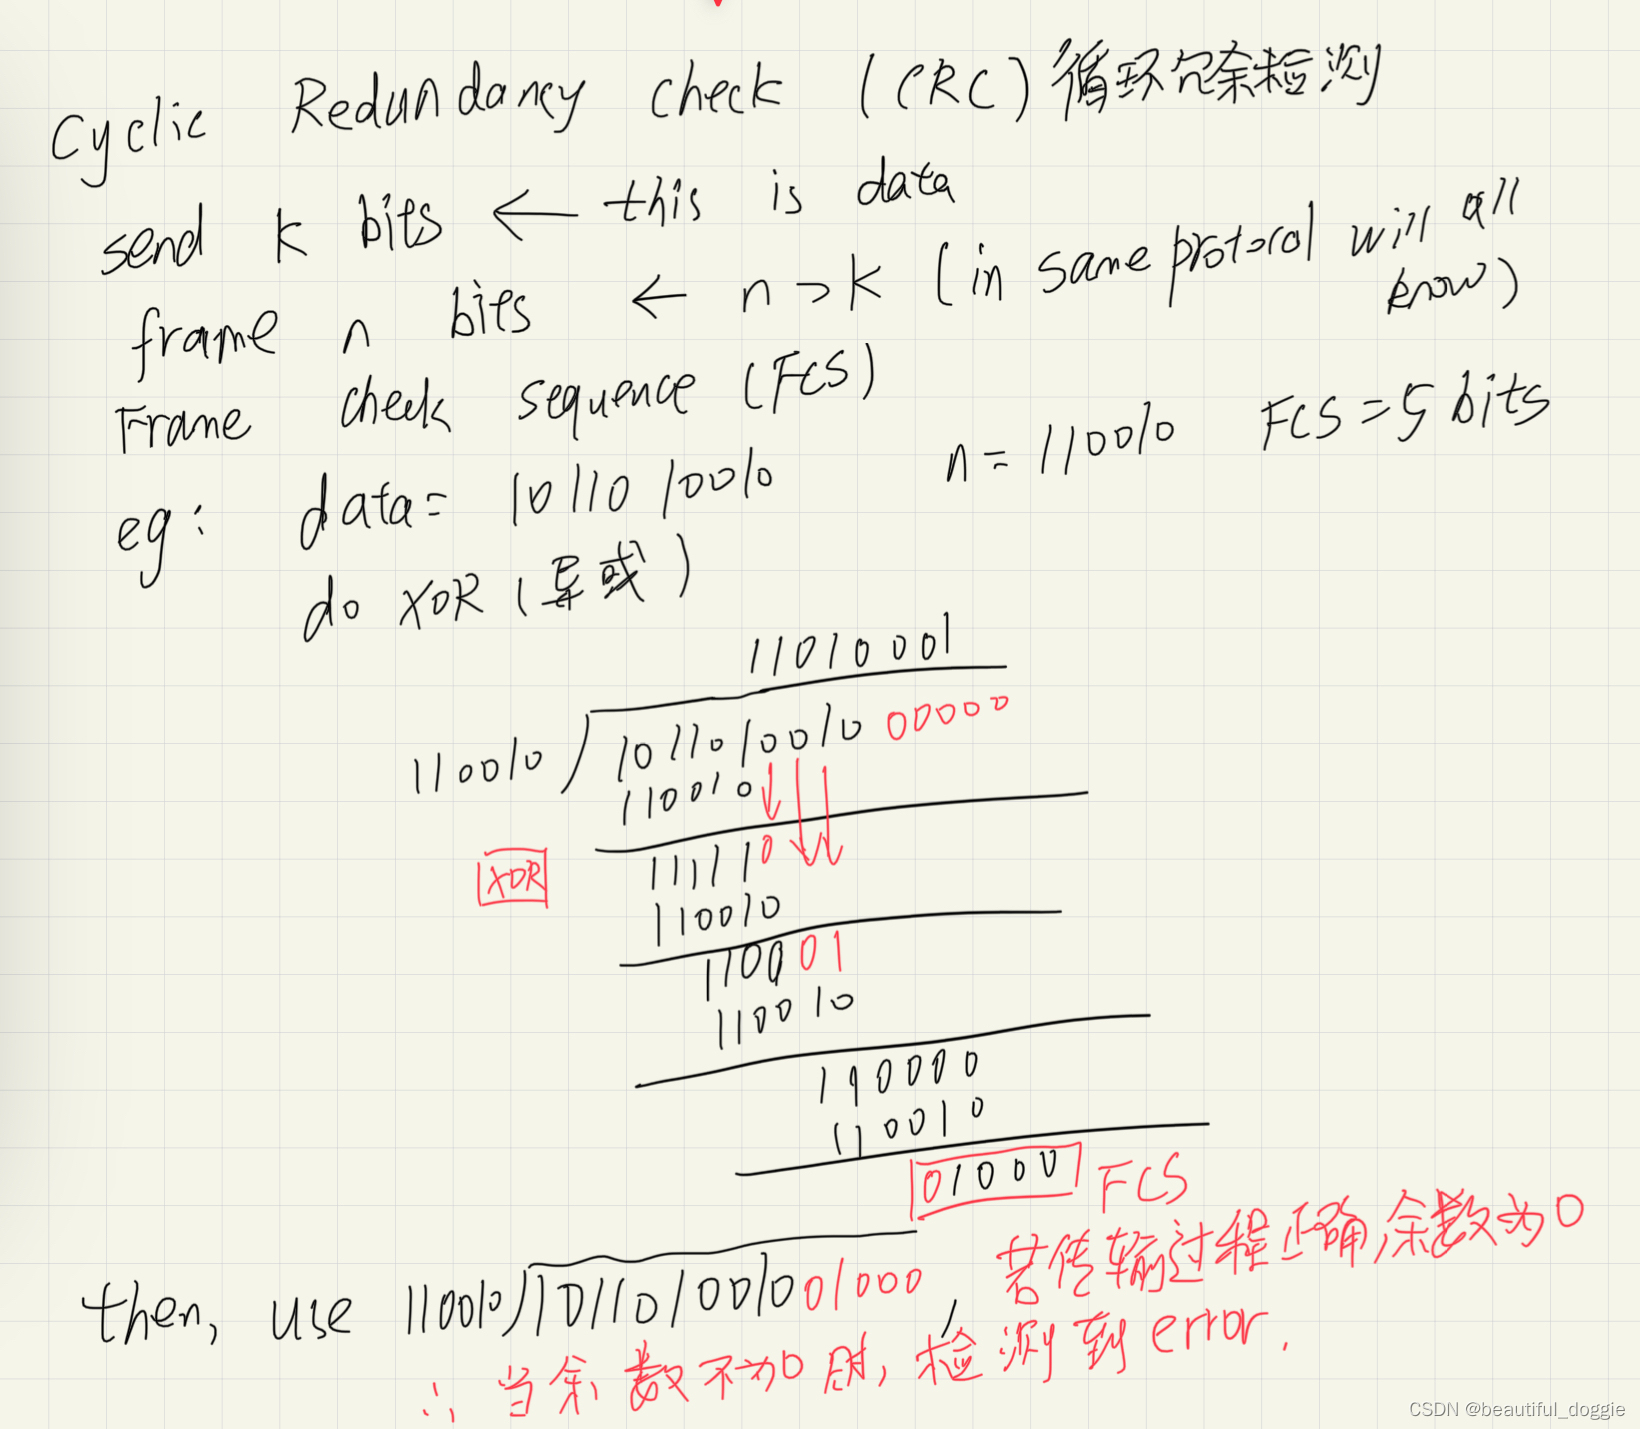 Cyclic Redundancy check (CRC) 循环冗余检测
send k bits ← this is data
frame n bits ← n > k (in same protoral will all know)
Frame check sequence (FCS)
eg: data= 10110 10010 n = 110010 FCS = 5 bits
do XOR (异或)
11010001
110010 1011010010 00000
110010
XOR 111110
110010
110001
110010
110000
110010
01000 FCS
then, use 110010 1011010010 01000, 若传输过程正确,余数为0
∴ 当余数不为0时,检测到error.
CSDN @beautiful_doggie